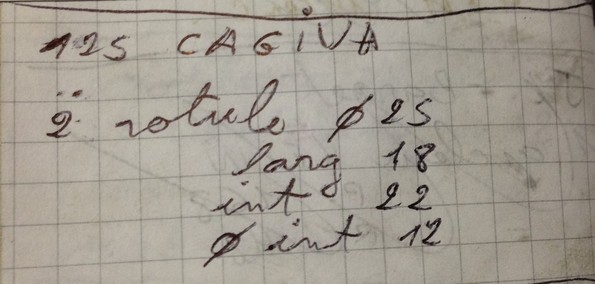 125 CAGIVA
2 rotule ø 25
larg 18
int 22
ø int 12